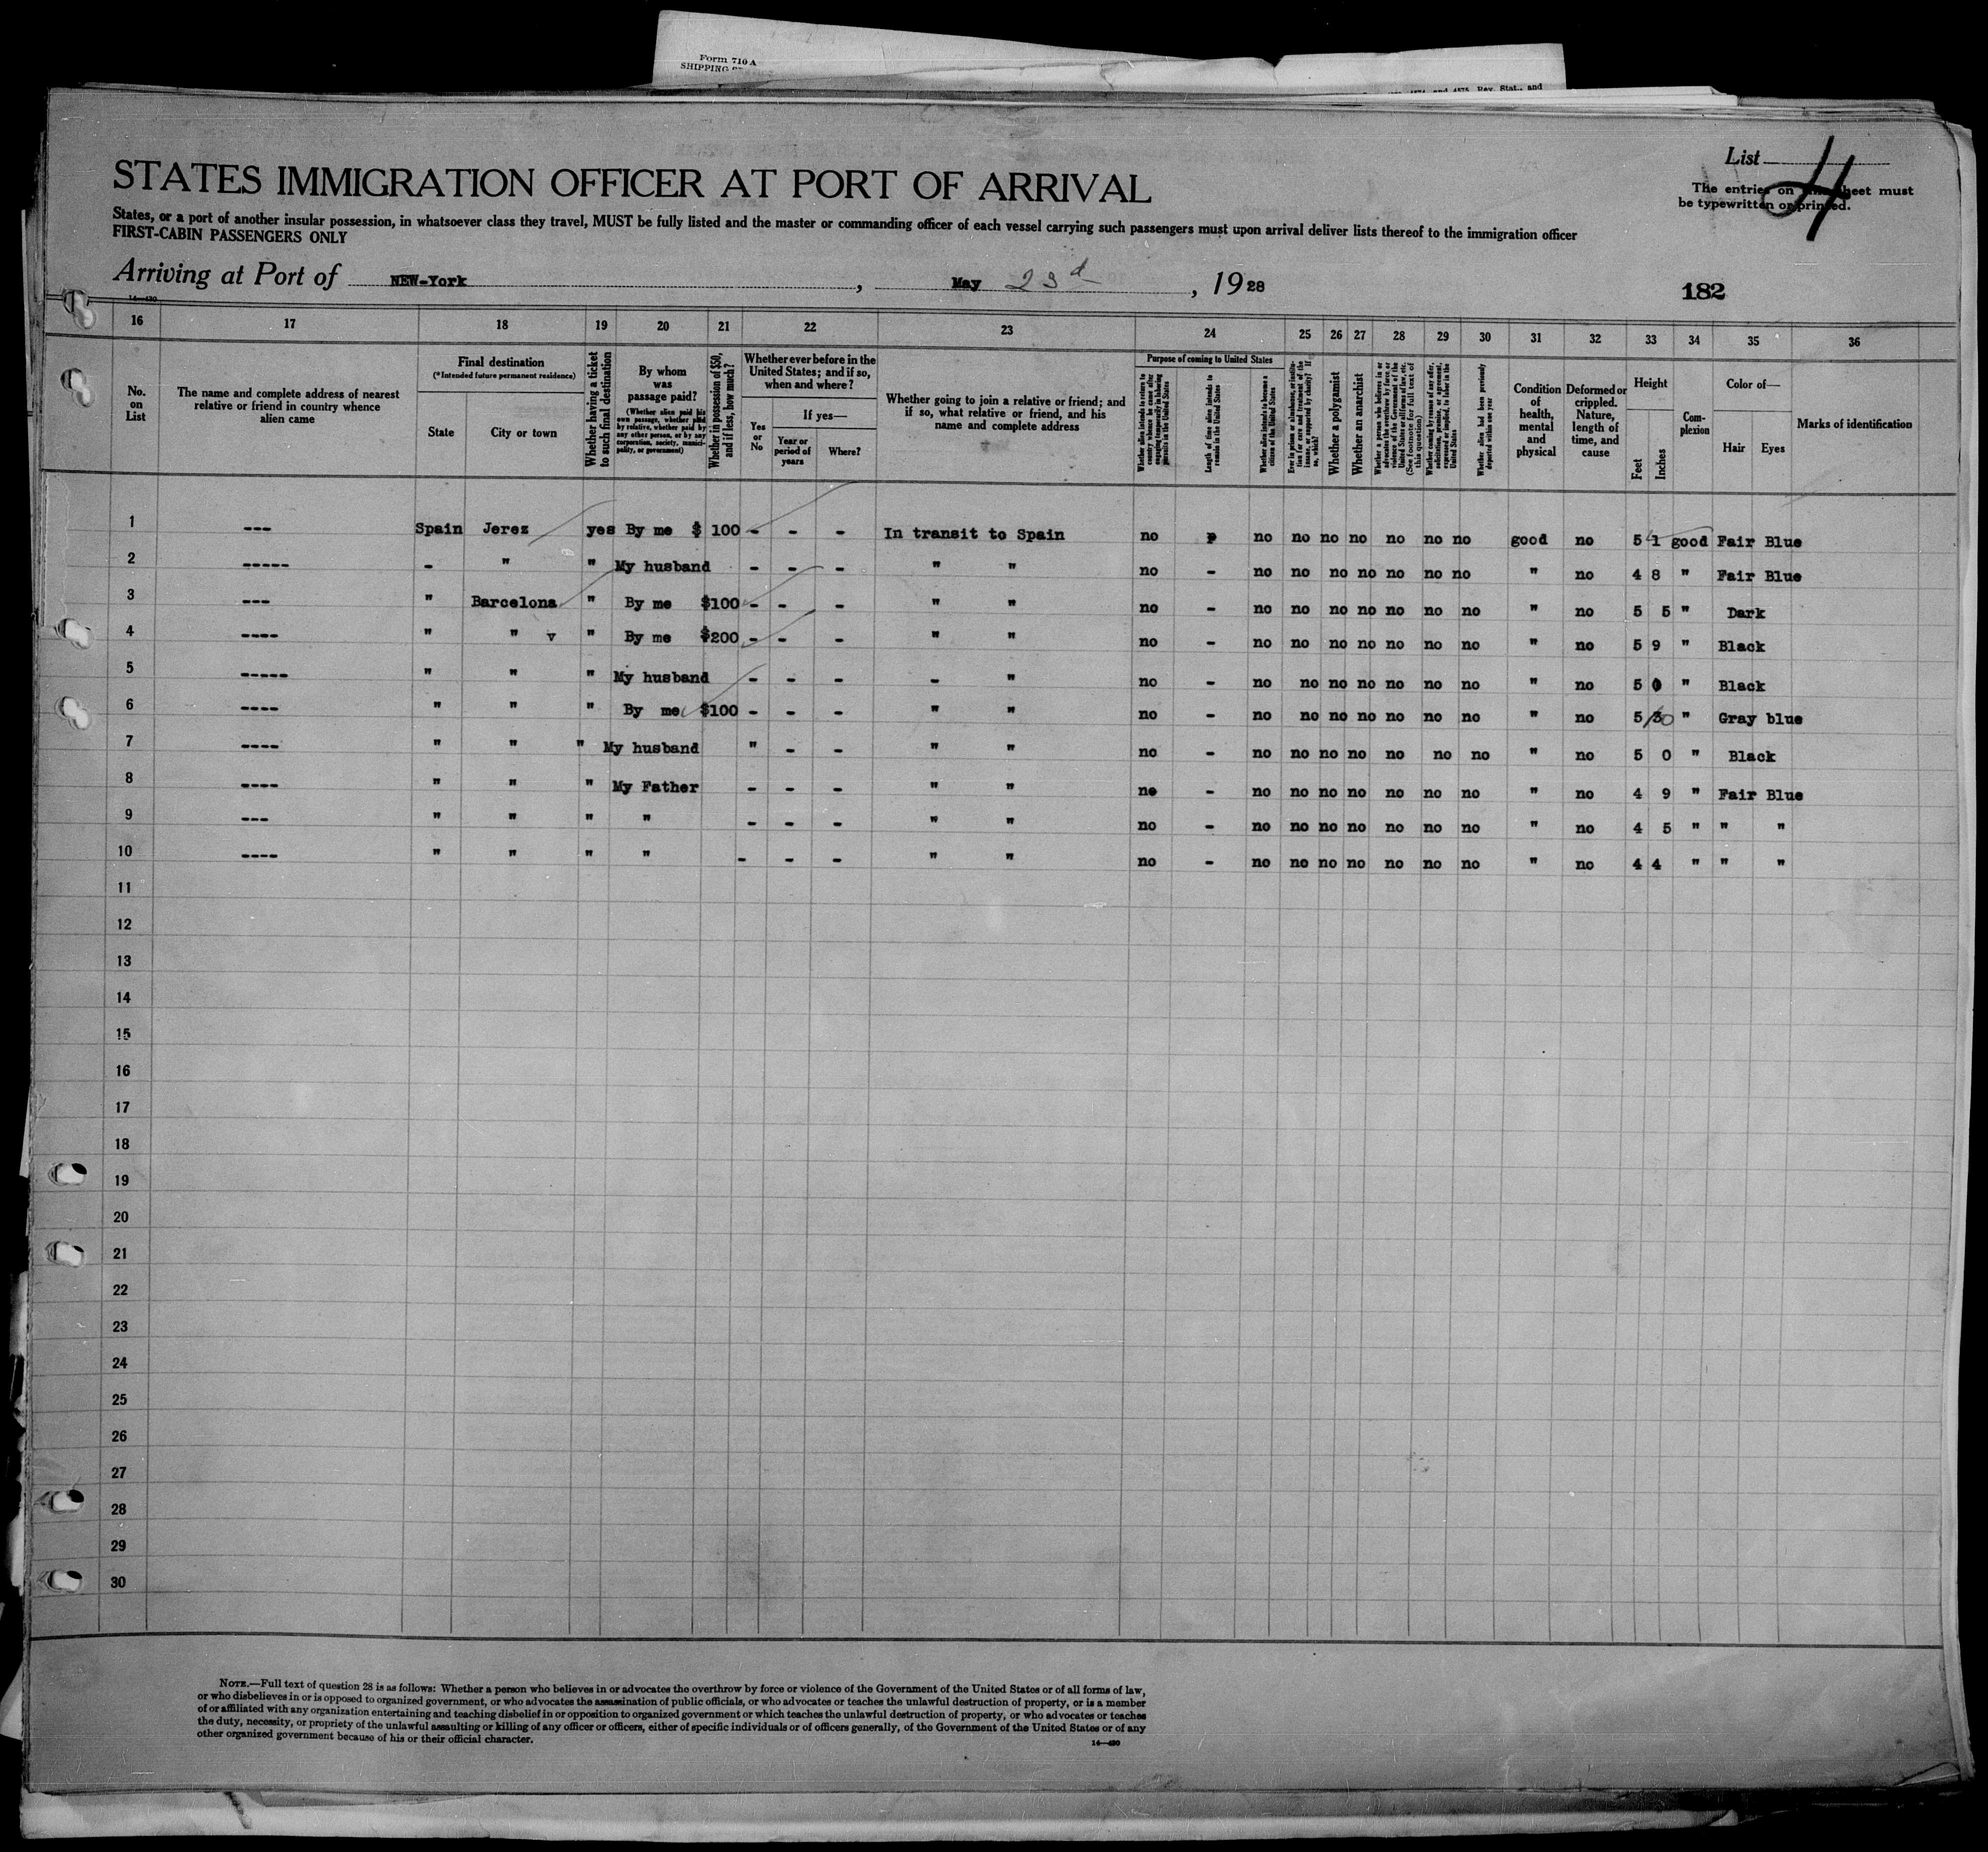 Form 710 A
SHIPPING
and 4575, Rev. Stat., and
List 4
The entries on this sheet must
be typewritten or printed.
STATES IMMIGRATION OFFICER AT PORT OF ARRIVAL
States, or a port of another insular possession, in whatsoever class they travel, MUST be fully listed and the master or commanding officer of each vessel carrying such passengers must upon arrival deliver lists thereof to the immigration officer
FIRST-CABIN PASSENGERS ONLY
Arriving at Port of NEW-York, May 23d, 1928
182
14—430
16 17 18 19 20 21 22 23 24 25 26 27 28 29 30 31 32 33 34 35 36
No. on List
The name and complete address of nearest relative or friend in country whence alien came
Final destination
(*Intended future permanent residence)
State
City or town
Whether having a ticket to such final destination
By whom was passage paid?
(Whether alien paid his own passage, whether paid by relative, whether paid by any other person, or by any corporation, society, municipality, or government)
Whether in possession of $50, and if less, how much?
Whether ever before in the United States; and if so, when and where?
Yes or No
If yes—
Year or period of years
Where?
Whether going to join a relative or friend; and if so, what relative or friend, and his name and complete address
Purpose of coming to United States
Whether alien intends to return to country whence he came after engaging temporarily in laboring pursuits in the United States
Length of time alien intends to remain in the United States
Whether alien intends to become a citizen of the United States
Ever in prison or almshouse, or institution for care and treatment of the insane, or supported by charity? If so, which?
Whether a polygamist
Whether an anarchist
Whether a person who believes in or advocates the overthrow by force or violence of the Government of the United States or all forms of law, etc. (See footnote for full text of this question)
Whether coming by reason of any offer, solicitation, promise, or agreement, expressed or implied, to labor in the United States
Whether alien had been previously deported within one year
Condition of health, mental and physical
Deformed or crippled. Nature, length of time, and cause
Height
Feet
Inches
Complexion
Color of—
Hair
Eyes
Marks of identification
1 --- Spain Jerez yes By me $ 100 - - - In transit to Spain no no no no no no no no good no 5 1 good Fair Blue
2 ----- - " " My husband - - - " " no - no no no no no no no " no 4 8 " Fair Blue
3 --- " Barcelona " By me $100 - - - " " no - no no no no no no no " no 5 5 " Dark
4 ---- " " v " By me $200 - - - " " no - no no no no no no no " no 5 9 " Black
5 ----- " " " My husband - - - - " no - no no no no no no no " no 5 0 " Black
6 ---- " " " By me $100 - - - " " no - no no no no no no no " no 5 " Gray blue
7 ---- " " " My husband " - - " " no - no no no no no no no " no 5 0 " Black
8 ---- " " " My Father - - - " " no - no no no no no no no " no 4 9 " Fair Blue
9 --- " " " " - - - " " no - no no no no no no no " no 4 5 " " "
10 ---- " " " " - - - " " no - no no no no no no no " no 4 4 " " "
11
12
13
14
15
16
17
18
19
20
21
22
23
24
25
26
27
28
29
30
NOTE.—Full text of question 28 is as follows: Whether a person who believes in or advocates the overthrow by force or violence of the Government of the United States or of all forms of law,
or who disbelieves in or is opposed to organized government, or who advocates the assassination of public officials, or who advocates or teaches the unlawful destruction of property, or is a member
of or affiliated with any organization entertaining and teaching disbelief in or opposition to organized government or which teaches the unlawful destruction of property, or who advocates or teaches
the duty, necessity, or propriety of the unlawful assaulting or killing of any officer or officers, either of specific individuals or of officers generally, of the Government of the United States or of any
other organized government because of his or their official character.
14—430